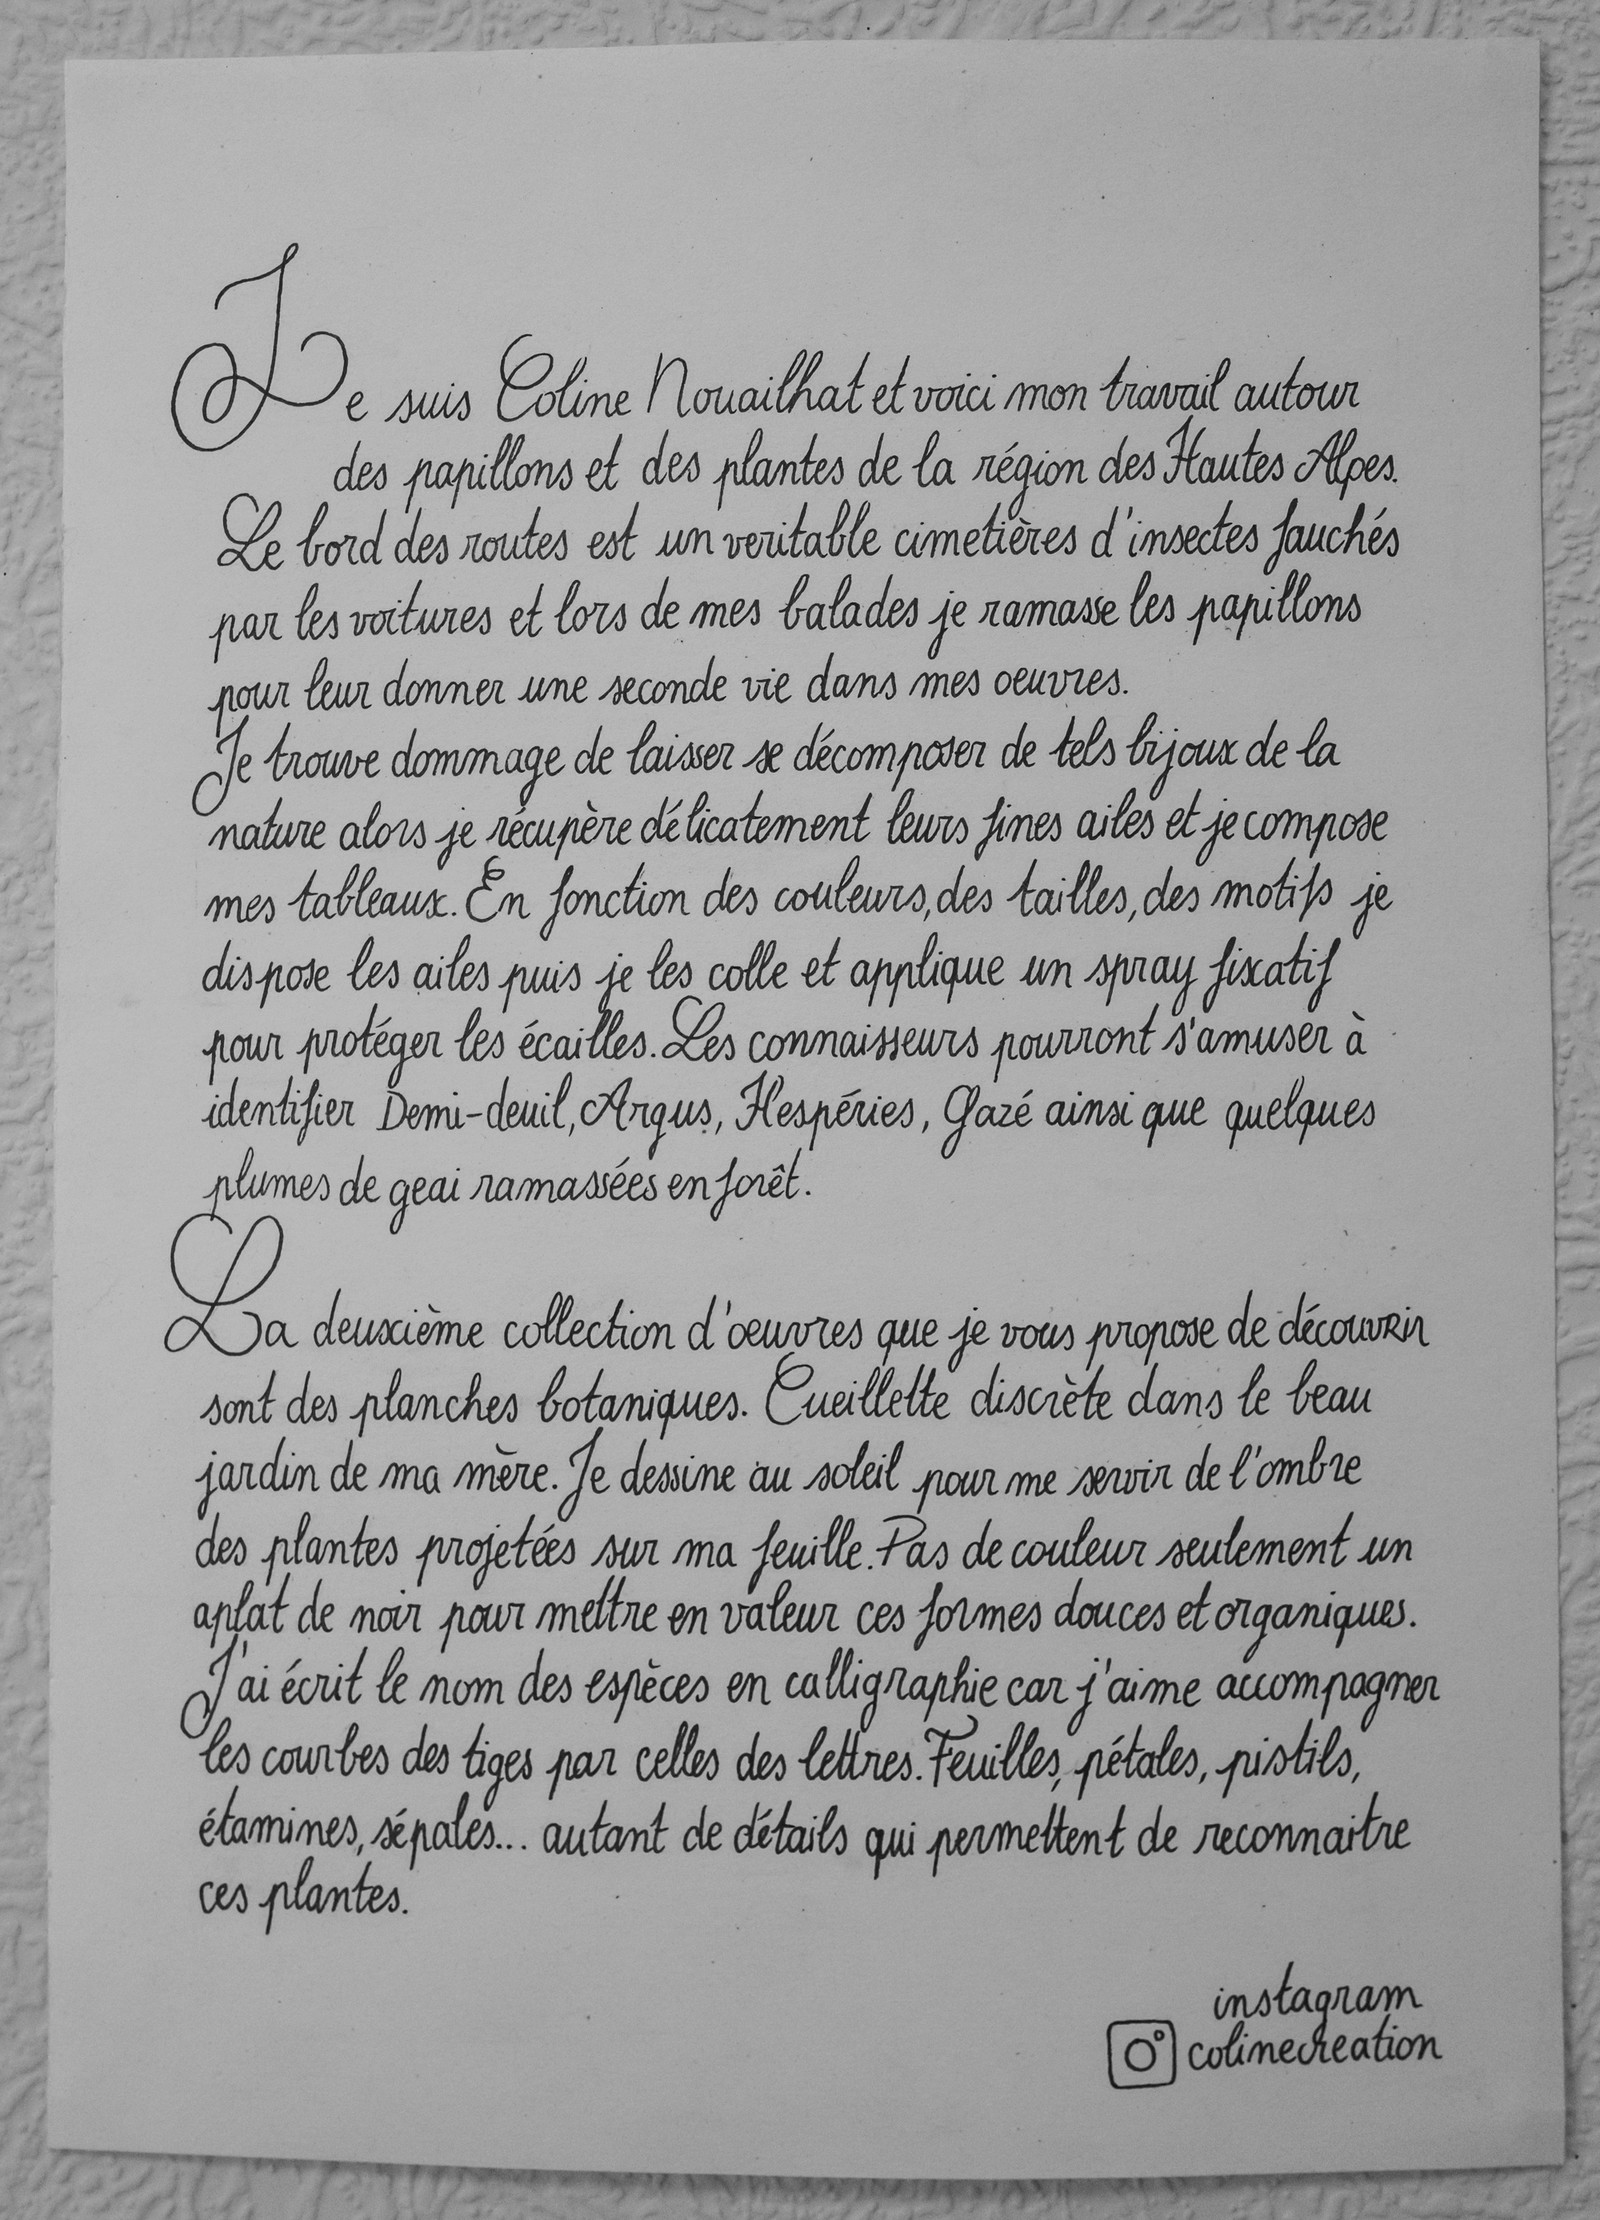 Je suis Coline Nouailhat et voici mon travail autour
des papillons et des plantes de la région des Hautes Alpes.
Le bord des routes est un veritable cimetières d'insectes fauchés
par les voitures et lors de mes balades je ramasse les papillons
pour leur donner une seconde vie dans mes oeuvres.
Je trouve dommage de laisser se décomposer de tels bijoux de la
nature alors je récupère délicatement leurs fines ailes et je compose
mes tableaux. En fonction des couleurs, des tailles, des motifs je
dispose les ailes puis je les colle et applique un spray fixatif
pour protéger les écailles. Les connaisseurs pourront s'amuser à
identifier Demi-deuil, Argus, Hespéries, Gazé ainsi que quelques
plumes de geai ramassées en forêt.
La deuxième collection d'oeuvres que je vous propose de découvrir
sont des planches botaniques. Cueillette discrète dans le beau
jardin de ma mère. Je dessine au soleil pour me servir de l'ombre
des plantes projetées sur ma feuille. Pas de couleur seulement un
aplat de noir pour mettre en valeur ces formes douces et organiques.
J'ai écrit le nom des espèces en calligraphie car j'aime accompagner
les courbes des tiges par celles des lettres. Feuilles, pétales, pistils,
étamines, sépales... autant de détails qui permettent de reconnaitre
ces plantes.
instagram
colinecreation